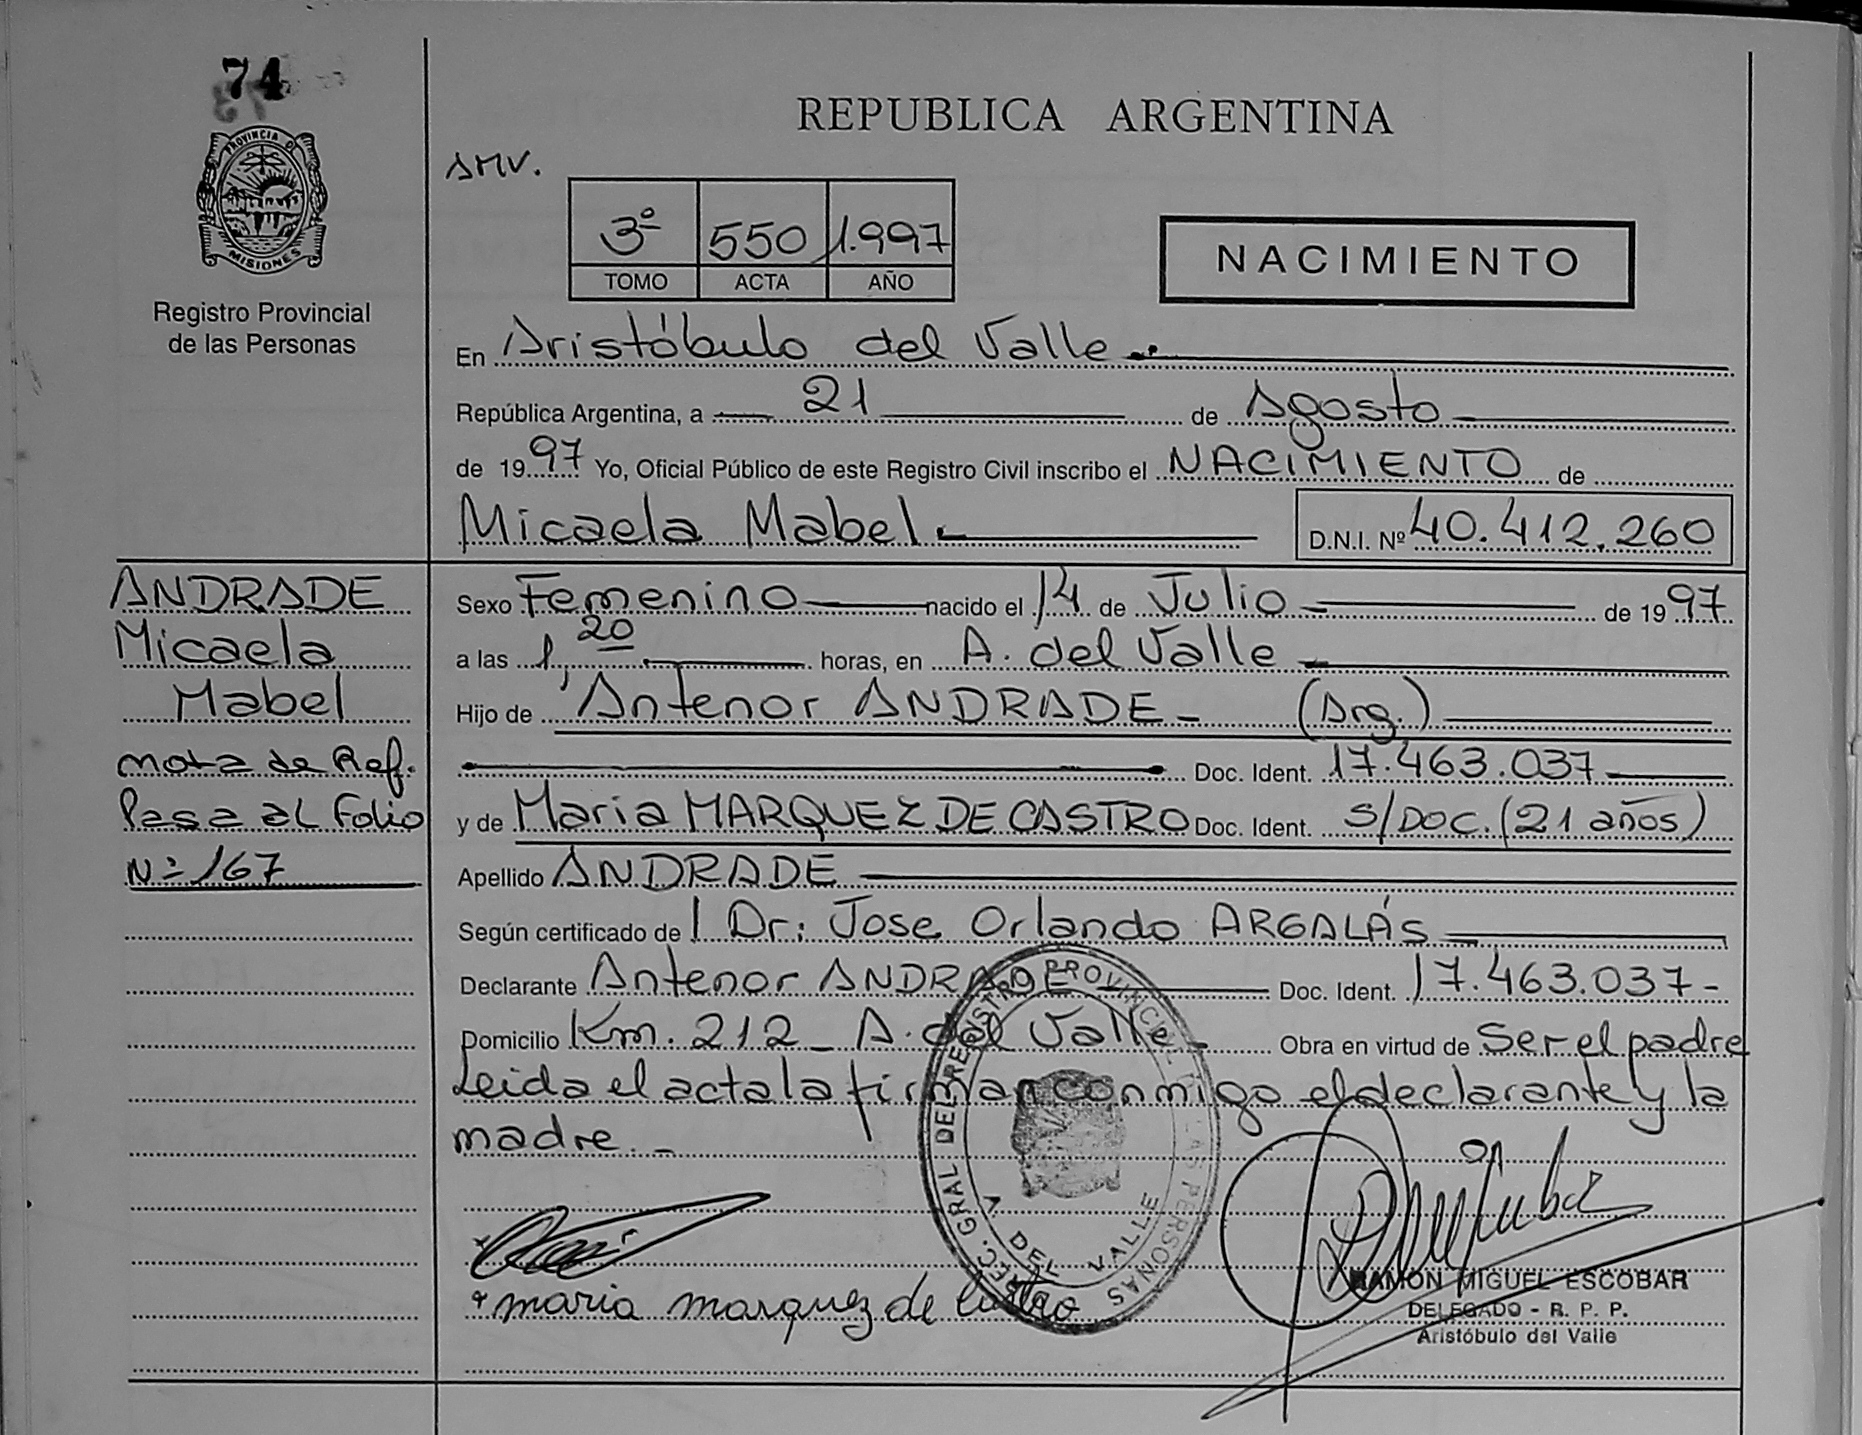 74
PROVINCIA D
MISIONES
Registro Provincial
de las Personas
REPUBLICA ARGENTINA
SMV.
3º 550 1.997
TOMO ACTA AÑO
NACIMIENTO
En Aristóbulo del Valle.
República Argentina, a 21 de Agosto
de 1997 Yo, Oficial Público de este Registro Civil inscribo el NACIMIENTO de
Micaela Mabel. D.N.I. Nº 40.412.260
ANDRADE
Micaela
Mabel
nota de Ref.
Pasa al Folio
Nº 167
Sexo Femenino nacido el 14 de Julio de 1997
a las 1,20 horas, en A. del Valle
Hijo de Antenor ANDRADE - (Arg.)
Doc. Ident. 17.463.037
y de Maria MARQUEZ DE CASTRO Doc. Ident. S/DOC. (21 años)
Apellido ANDRADE
Según certificado de l Dr: Jose Orlando ARGALÁS
Declarante Antenor ANDRADE Doc. Ident. 17.463.037-
Domicilio Km. 212 - A. del Valle - Obra en virtud de Ser el padre
Leida el acta la firman conmigo el declarante y la
madre. -
maria marquez de Castro
REGISTRO PROVINCIAL DE LAS PERSONAS
GRAL DEL
A. DEL VALLE
RAMON MIGUEL ESCOBAR
DELEGADO - R. P. P.
Aristóbulo del Valle